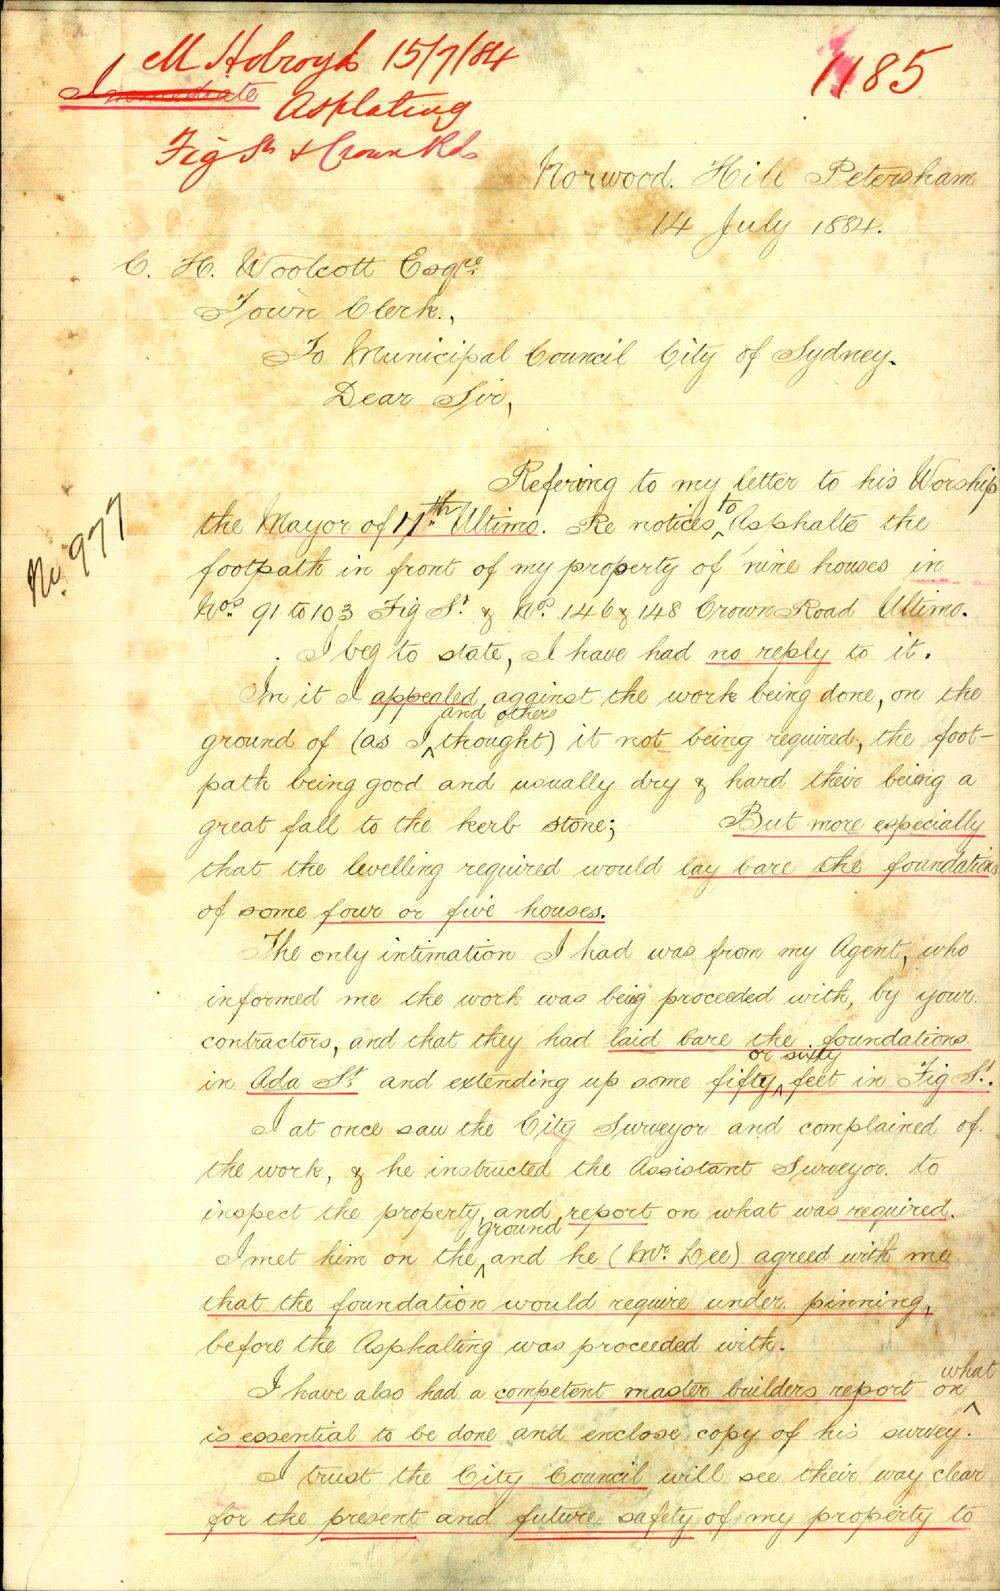 M Holroyd 15/7/84
1185
Immediate Asplating
Fig St & Crown Rd
Norwood. Hill Petersham
14 July 1884.
C. H. Woolcott Esqre
Town Clerk.,
To Municipal Council City of Sydney.
Dear Sir,
Refering to my letter to his Worship
the Mayor of 17th Ultimo. Re notices to Asphalte the
No. 977
footpath in front of my property of nine houses in
Nos 91 to 103 Fig St & Nos 146 & 148 Crown Road Ultimo.
I beg to state, I have had no reply to it.
In it I appealed, against the work being done, on the
ground of (as I and others thought) it not being required, the foot-
path being good and usually dry & hard their being a
great fall to the kerb stone; But more especially
that the levelling required would lay bare the foundations
of some four or five houses.
The only intimation I had was from my Agent, who
informed me the work was being proceeded with, by your
contractors, and that they had laid bare the foundations
in Ada St and extending up some fifty or sixty feet in Fig St.
I at once saw the City Surveyor and complained of
the work, & he instructed the Assistant Surveyor to
inspect the property, and report on what was required.
I met him on the ground and he (Mr. Lee) agreed with me
that the foundation would require under pinning,
before the Asphalting was proceeded with.
I have also had a competent master builders report on what
is essential to be done and enclose copy of his survey.
I trust the City Council will see their way clear
for the present and future safety of my property to